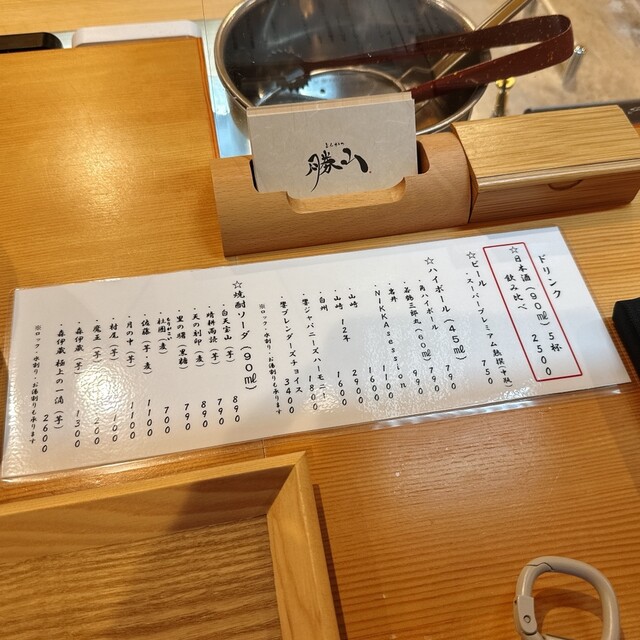 勝山
ドリンク
☆日本酒(90㎖)5杯
飲み比べ 2500
☆ビール
・スーパープレミアム熟撰(中瓶) 750
☆ハイボール(45㎖)
・角ハイボール 790
・若鶴三郎丸(60㎖) 990
・岩井 1100
・NIKKA session 1100
・山崎 1600
・山崎 12年 2900
・白州 1600
・響ジャパニーズハーモニー 1800
・響ブレンダーズチョイス 3400
※ロック・水割り・お湯割りも承ります
☆焼酎ソーダ(90㎖)
・白天宝山(芋) 890
・晴耕雨読(芋) 790
・天の刻印(麦) 890
・里の曙(黒糖) 790
・杜園(麦) 700
・佐藤(芋・麦) 1100
・月の中(芋) 1100
・村尾(芋) 1100
・魔王(芋) 1200
・森伊蔵(芋) 1300
・森伊蔵 極上の一滴(芋) 2600
※ロック・水割り・お湯割りも承ります